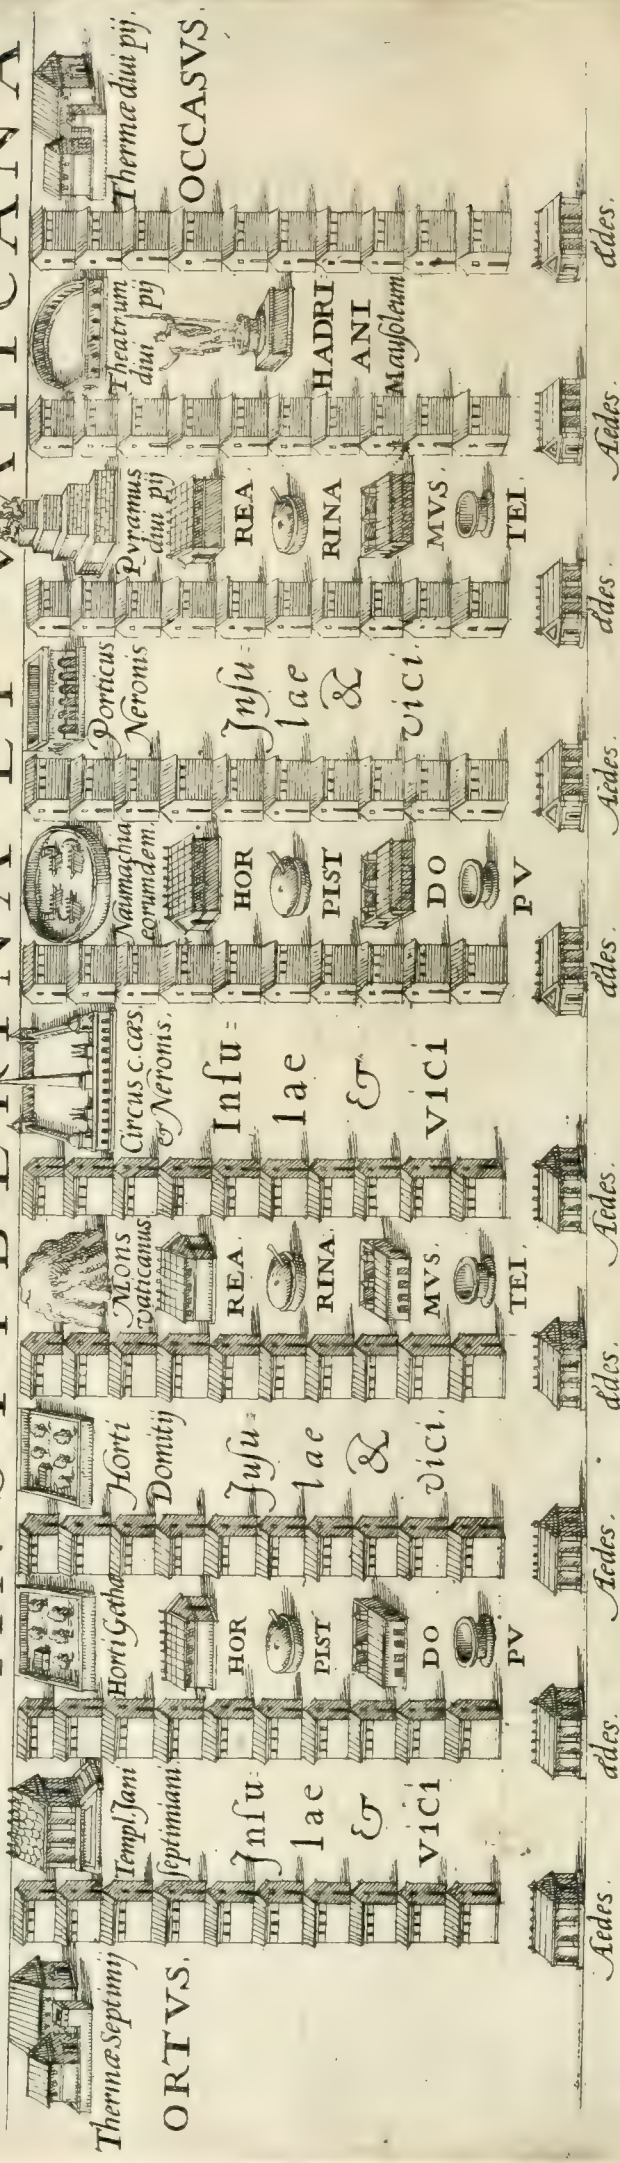 Thermæ Septimij
ORTVS.
Templ. Jani
ſeptimiani
Inſu=
lae
&
vici
Horti Getha
HOR
PIST
DO
PV
Horti
Domitij
Inſu=
lae
&
vici.
Mons
vaticanus
REA.
RINA.
MVS.
TEI.
Circus c. cæs.
& Neronis.
Inſu=
lae
&
vici
Naumachia
eorumdem.
HOR
PIST
DO
PV
Porticus
Neronis
Inſu=
lae
&
vici.
Pyramus
diui pij
REA.
RINA
MVS.
TEI.
Theatrum
diui pij
HADRI
ANI
Mauſoleum
Thermæ diui pij.
OCCASVS.
Aedes. ædes. Aedes. ædes. Aedes. ædes. Aedes. ædes. Aedes. ædes.